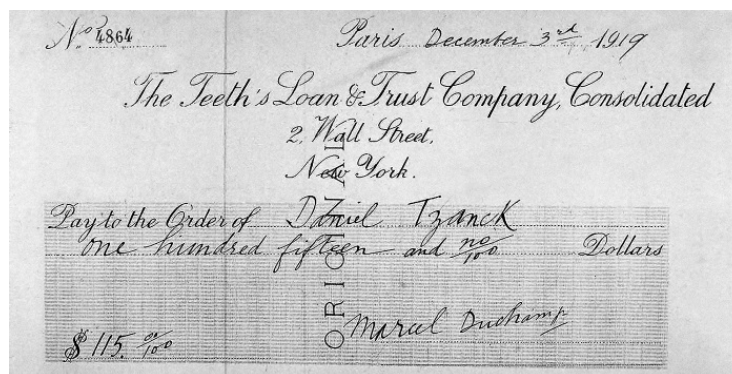 No 4864 Paris December 3rd 1919
The Teeth's Loan & Trust Company, Consolidated
2, Wall Street,
New York.
Pay to the Order of Daniel Tzanck
one hundred fifteen and no/100 Dollars
Marcel Duchamp
$ 115. oo/100
ORIGINAL